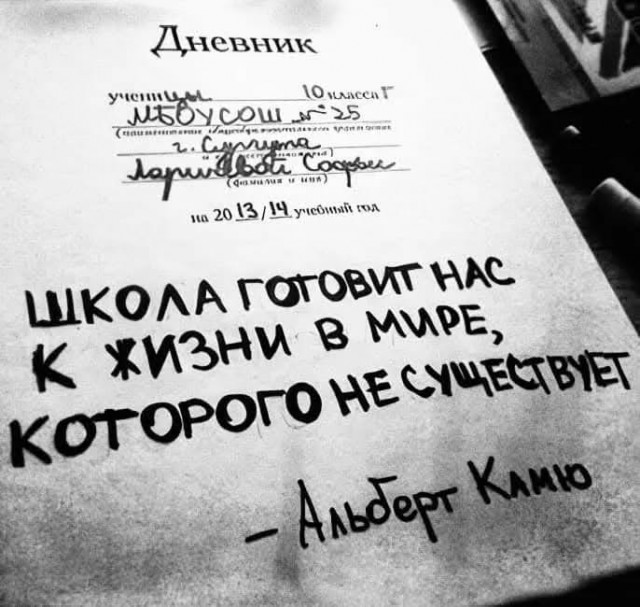 Дневник
ученицы 10 класса Г
МБОУСОШ №25
г. Сургута
Софьи
(фамилия и имя)
на 2013/14 учебный год
ШКОЛА ГОТОВИТ НАС
К ЖИЗНИ В МИРЕ,
КОТОРОГО НЕ СУЩЕСТВУЕТ
- Альберт Камю